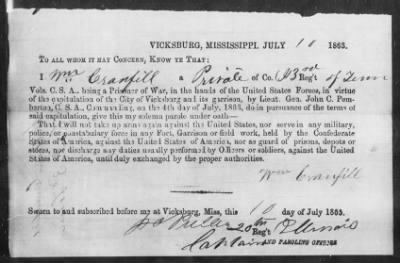 VICKSBURG, MISSISSIPPI, JULY 10 1863.
TO ALL WHOM IT MAY CONCERN, KNOW YE THAT:
I Wm Cranfill a Private of Co. Reg't of Tenn
Vols. C. S. A., being a Prisoner of War, in the hands of the United States Forces, in virtue
of the capitulation of the City of Vicksburg and its garrison, by Lieut. Gen. John C. Pem-
barton, C. S. A., Commanding, on the 4th day of July, 1863, do in pursuance of the terms of
said capitulation, give this my solemn parole under oath—
That I will not take up arms again against the United States, nor serve in any military,
police, or constabulary force in any Fort, Garrison or field work, held by the Confederate
States of America, against the United States of America, nor as guard of prisons, depots or
stores, nor discharge any duties usually performed by Officers or soldiers, against the United
States of America, until duly exchanged by the proper authorities.
Wm Cranfill
Sworn to and subscribed before me at Vicksburg, Miss, this 10 day of July 1863.
20th Reg't Illinois
Captain AND PAROLING OFFICER